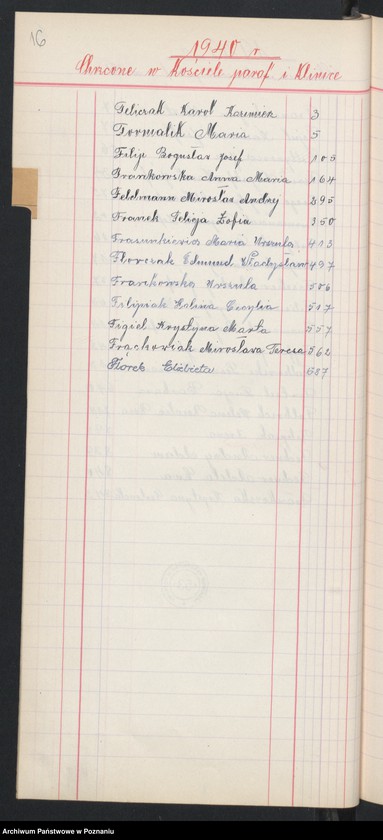 16
1940 r
Chrzone w Kościele paraf. i Klinice
Feliczak Karol Kazimierz 3
Formalik Maria 5
Filip Bogusław Josef 105
Frankowska Anna Maria 164
Feldmann Mirosław Andrzej 295
Franek Felicja Zofia 350
Frasunkiewicz Maria Urszula 413
Florczak Edmund Władysław 497
Frankowska Urszula 506
Filipiak Halina Cecylia 517
Figiel Krystyna Marta 557
Frąchowiak Mirosława Teresa 562
Florek Elżbieta 687
Archiwum Państwowe w Poznaniu